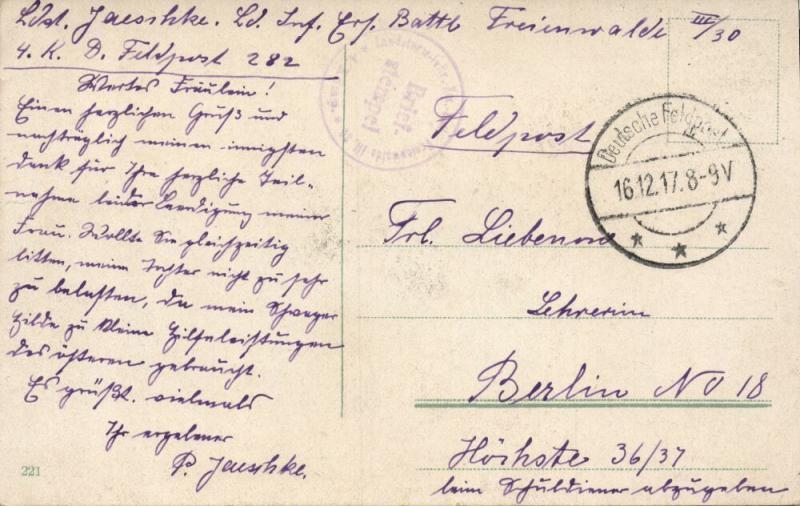 Ldst. Jaeschke. Ld. Inf. Ers. Battl. Freienwalde III/30
4. K. D. Feldpost 282
Wertes Fräulein!
Einen herzlichen Gruß und
nachträglich meinen innigsten
dank für Ihre herzliche Teil-
nahme bei der Beerdigung meiner
Frau. Wollte Sie gleichzeitig
bitten, meine Tochter nicht zu sehr
zu belasten, da mein Schwager
Hilde zu kleine Hilfeleistungen
des öfteren gebraucht.
Es grüßt vielmals
Ihr ergebener
P. Jaeschke.
221
Brief-
stempel
Feldpost
Deutsche Feldpost
16.12.17. 8-9V
Frl. Liebenow
Lehrerin
Berlin NO 18
Höchste 36/37
beim Schuldiener abzugeben